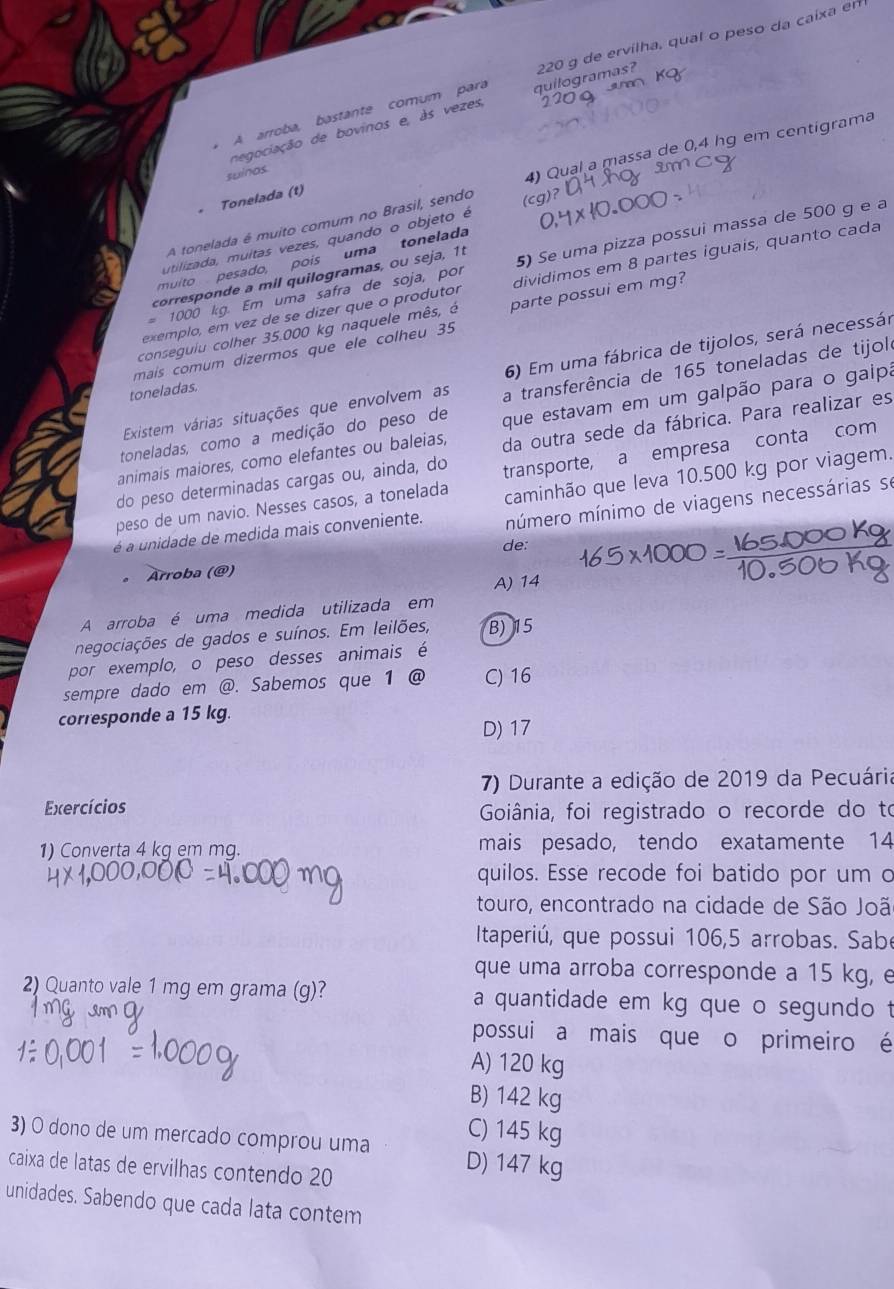 • A arroba, bastante comum para
negociação de bovinos e, às vezes,
suínos.
• Tonelada (t)
A tonelada é muito comum no Brasil, sendo
utilizada, muitas vezes, quando o objeto é
muito pesado, pois uma tonelada
corresponde a mil quilogramas, ou seja, 1t
= 1000 kg. Em uma safra de soja, por
exemplo, em vez de se dizer que o produtor
conseguiu colher 35.000 kg naquele mês, é
mais comum dizermos que ele colheu 35
toneladas.
Existem várias situações que envolvem as
toneladas, como a medição do peso de
animais maiores, como elefantes ou baleias,
do peso determinadas cargas ou, ainda, do
peso de um navio. Nesses casos, a tonelada
é a unidade de medida mais conveniente.
• Arroba (@)
A arroba é uma medida utilizada em
negociações de gados e suínos. Em leilões,
por exemplo, o peso desses animais é
sempre dado em @. Sabemos que 1 @
corresponde a 15 kg.
Exercícios
1) Converta 4 kg em mg.
4×1,000,000 =4.000 mg
2) Quanto vale 1 mg em grama (g)?
1mg em g
1÷0,001 =1.000g
3) O dono de um mercado comprou uma
caixa de latas de ervilhas contendo 20
unidades. Sabendo que cada lata contem
220 g de ervilha, qual o peso da caixa em
quilogramas?
220g em Kg
4) Qual a massa de 0,4 hg em centigrama
(cg)? 0,4 hg em cg
0,4×10.000 =
5) Se uma pizza possui massa de 500 g e a
dividimos em 8 partes iguais, quanto cada
parte possui em mg?
6) Em uma fábrica de tijolos, será necessár
a transferência de 165 toneladas de tijol
que estavam em um galpão para o galpã
da outra sede da fábrica. Para realizar es
transporte, a empresa conta com
caminhão que leva 10.500 kg por viagem.
número mínimo de viagens necessárias se
de: 165×1000 = 165.000 Kg
10.500 Kg
A) 14
B) 15
C) 16
D) 17
7) Durante a edição de 2019 da Pecuária
Goiânia, foi registrado o recorde do to
mais pesado, tendo exatamente 14
quilos. Esse recode foi batido por um o
touro, encontrado na cidade de São Joã
Itaperiú, que possui 106,5 arrobas. Sabe
que uma arroba corresponde a 15 kg, e
a quantidade em kg que o segundo t
possui a mais que o primeiro é
A) 120 kg
B) 142 kg
C) 145 kg
D) 147 kg